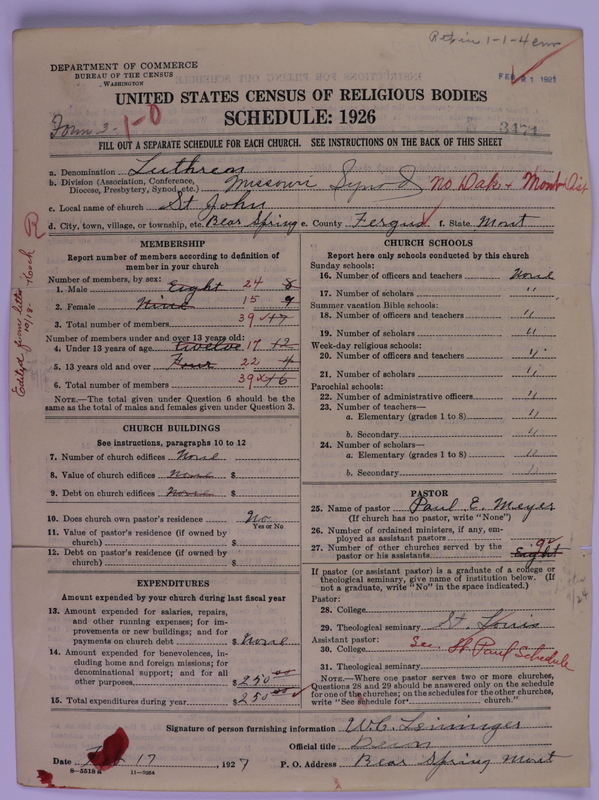 DEPARTMENT OF COMMERCE
BUREAU OF THE CENSUS
WASHINGTON
FEB 21 192
UNITED STATES CENSUS OF RELIGIOUS BODIES
SCHEDULE: 1926
Form 2- 1-0
3471
FILL OUT A SEPARATE SCHEDULE FOR EACH CHURCH. SEE INSTRUCTIONS ON THE BACK OF THIS SHEET
a. Denomination Luthren
b. Division (Association, Conference, Diocese, Presbytery, Synod, etc.) Missouri Synod No Dak & Mont Dist
c. Local name of church St John
d. City, town, village, or township, etc. Bear Spring e. County Fergus f. State Mont
R
Edited from letter 10/18-
MEMBERSHIP
Report number of members according to definition of
member in your church
Number of members, by sex:
1. Male Eight 24 8
2. Female Nine 15 9
3. Total number of members 39 17
Number of members under and over 13 years old:
4. Under 13 years of age Twelve 17 12
5. 13 years old and over Four 22 4
6. Total number of members 39 16
NOTE.—The total given under Question 6 should be the
same as the total of males and females given under Question 3.
CHURCH BUILDINGS
See instructions, paragraphs 10 to 12
7. Number of church edifices None
8. Value of church edifices None $
9. Debt on church edifices None $
10. Does church own pastor's residence No
Yes or No
11. Value of pastor's residence (if owned by
church) $
12. Debt on pastor's residence (if owned by
church) $
EXPENDITURES
Amount expended by your church during last fiscal year
13. Amount expended for salaries, repairs,
and other running expenses; for im-
provements or new buildings; and for
payments on church debt $ None
14. Amount expended for benevolences, in-
cluding home and foreign missions; for
denominational support; and for all
other purposes $ 250 00
15. Total expenditures during year $ 250 00
CHURCH SCHOOLS
Report here only schools conducted by this church
Sunday schools:
16. Number of officers and teachers None
17. Number of scholars "
Summer vacation Bible schools:
18. Number of officers and teachers "
19. Number of scholars "
Week-day religious schools:
20. Number of officers and teachers "
21. Number of scholars "
Parochial schools:
22. Number of administrative officers "
23. Number of teachers—
a. Elementary (grades 1 to 8) "
b. Secondary "
24. Number of scholars—
a. Elementary (grades 1 to 8) "
b. Secondary "
PASTOR
25. Name of pastor Paul E. Meyer
(If church has no pastor, write "None")
26. Number of ordained ministers, if any, em-
ployed as assistant pastors
27. Number of other churches served by the
pastor or his assistants Eight
If pastor (or assistant pastor) is a graduate of a college or
theological seminary, give name of institution below. (If
not a graduate, write "No" in the space indicated.)
Pastor:
28. College
29. Theological seminary St. Louis
Assistant pastor:
30. College See St Paul Schedule
31. Theological seminary
NOTE.—Where one pastor serves two or more churches,
Questions 28 and 29 should be answered only on the schedule
for one of the churches; on the schedules for the other churches,
write "See schedule for church."
Signature of person furnishing information W.C. Leininger
Official title
Date 17, 1927 P. O. Address Bear Spring Mont
8—5518 11—9264